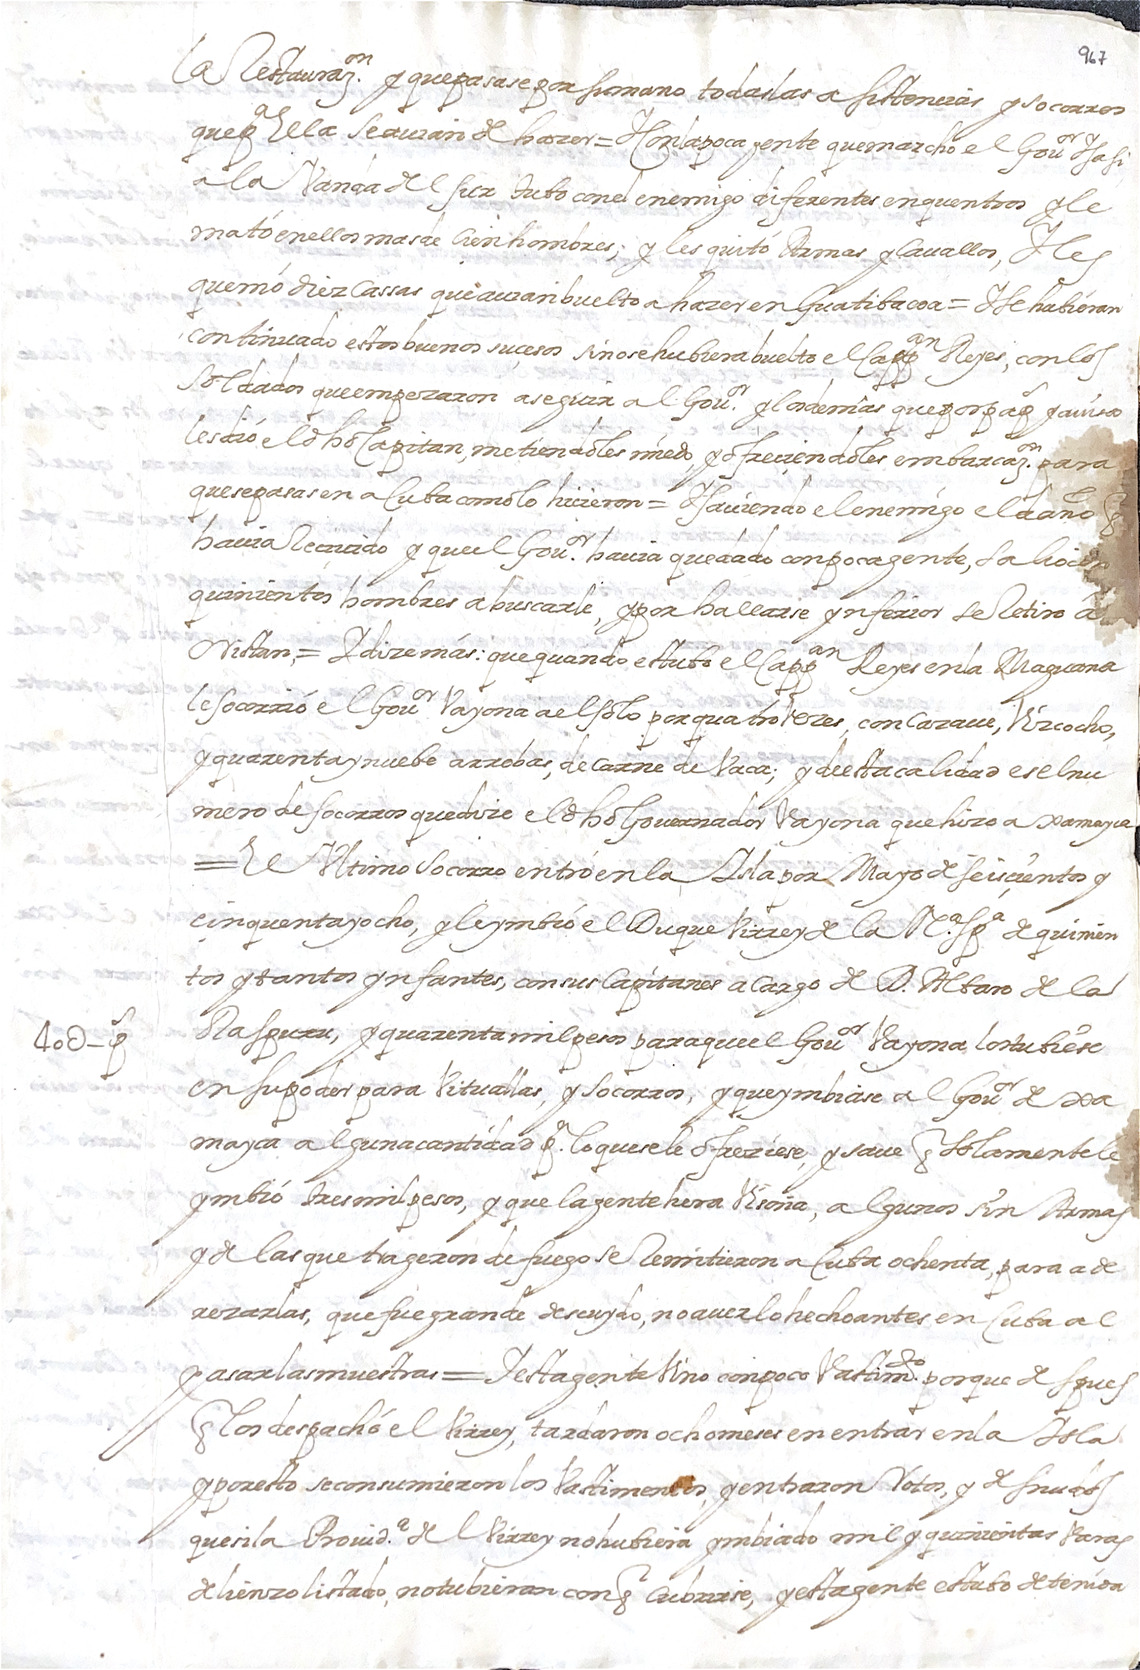 967
la Restauraz.on y quepasasepor sumano todaslas asistencias y socorros
quep.a Ella seauian de hazer = Y conlapoca gente quemarchó el Gou.or Ysasi
ala Vanda del sur tubo conel enemigo diferentes enquentros y le
mató enellos masde Cien hombres; y les quitó Armas y Cauallos, Y les
quemó diez Cassas que auian buelto a hazer en Guatibacoa = Y se habieran
continuado estos buenos sucesos sinosehubiera buelto el Capp.an Reyes, con los
soldados queempezaron aseguir al Gou.or y losdemas que por auiso
lesdió el dho Capitan, metiendoles miedo, y ofreciendoles embarcaz.on para
quesepasasen a Cuba comolo hicieron = Y sauiendo el enemigo el daño q
hauia Recuido y queel Gou.or hauia quedado conpocagente, salio con
quinientos hombres abuscarle, y por hallarse ynferior se Retiro a
Oristan, = Y dize más: que quando estubo el Capp.an Reyes enla Maguana
le socorrió el Gou.or Vayona aelsolo por quatro Vezes, con Cazaue, Vizcocho,
y quarenta y nuebe arrobas, de Carne de Vaca; y deesta calidad es el nu
mero de socorros quedize el dho Gouernador Vayona que hizo a xamayca
= El Vltimo socorro entró en la Ysla por Mayo de seiscientos y
cinquenta y ocho, y le ymbió el Duque Virrey de la N.a Sp.a de quinien
tos y tantos ynfantes, con sus Capitanes a Cargo de D. Albaro de la
40 U p.s
Raspuru, y quarenta mil pesos paraqueel Gou.or Vayona los tubiese
en su poder para Vituallas, y socorros, y queymbiase al Gou.or de xa
mayca alguna cantidad p.a loquesele ofreziese, y saue q solamente le
ymbió tres mil pesos, y que lagente hera Visoña, algunos sin Armas
y de las que trageron de fuego se Remitieron a Cuba ochenta, para ade
rezarlas, que fue grande descuydo, no auerlo hecho antes en Cuba al
pasar las muestras = Y esta gente Vino con poco Vastim.to porque despues
q los despachó el Virrey, tardaron ocho meses en entrar en la Ysla
y poresto seconsumieron los Vastimentos, y entraron Rotos, y desnudos
que si la Prouid.a del Virrey no hubiera ymbiado mil y quinientas Varas
de lienzo listado, no tubieran con q cubrirse, y esta gente estubo detenida